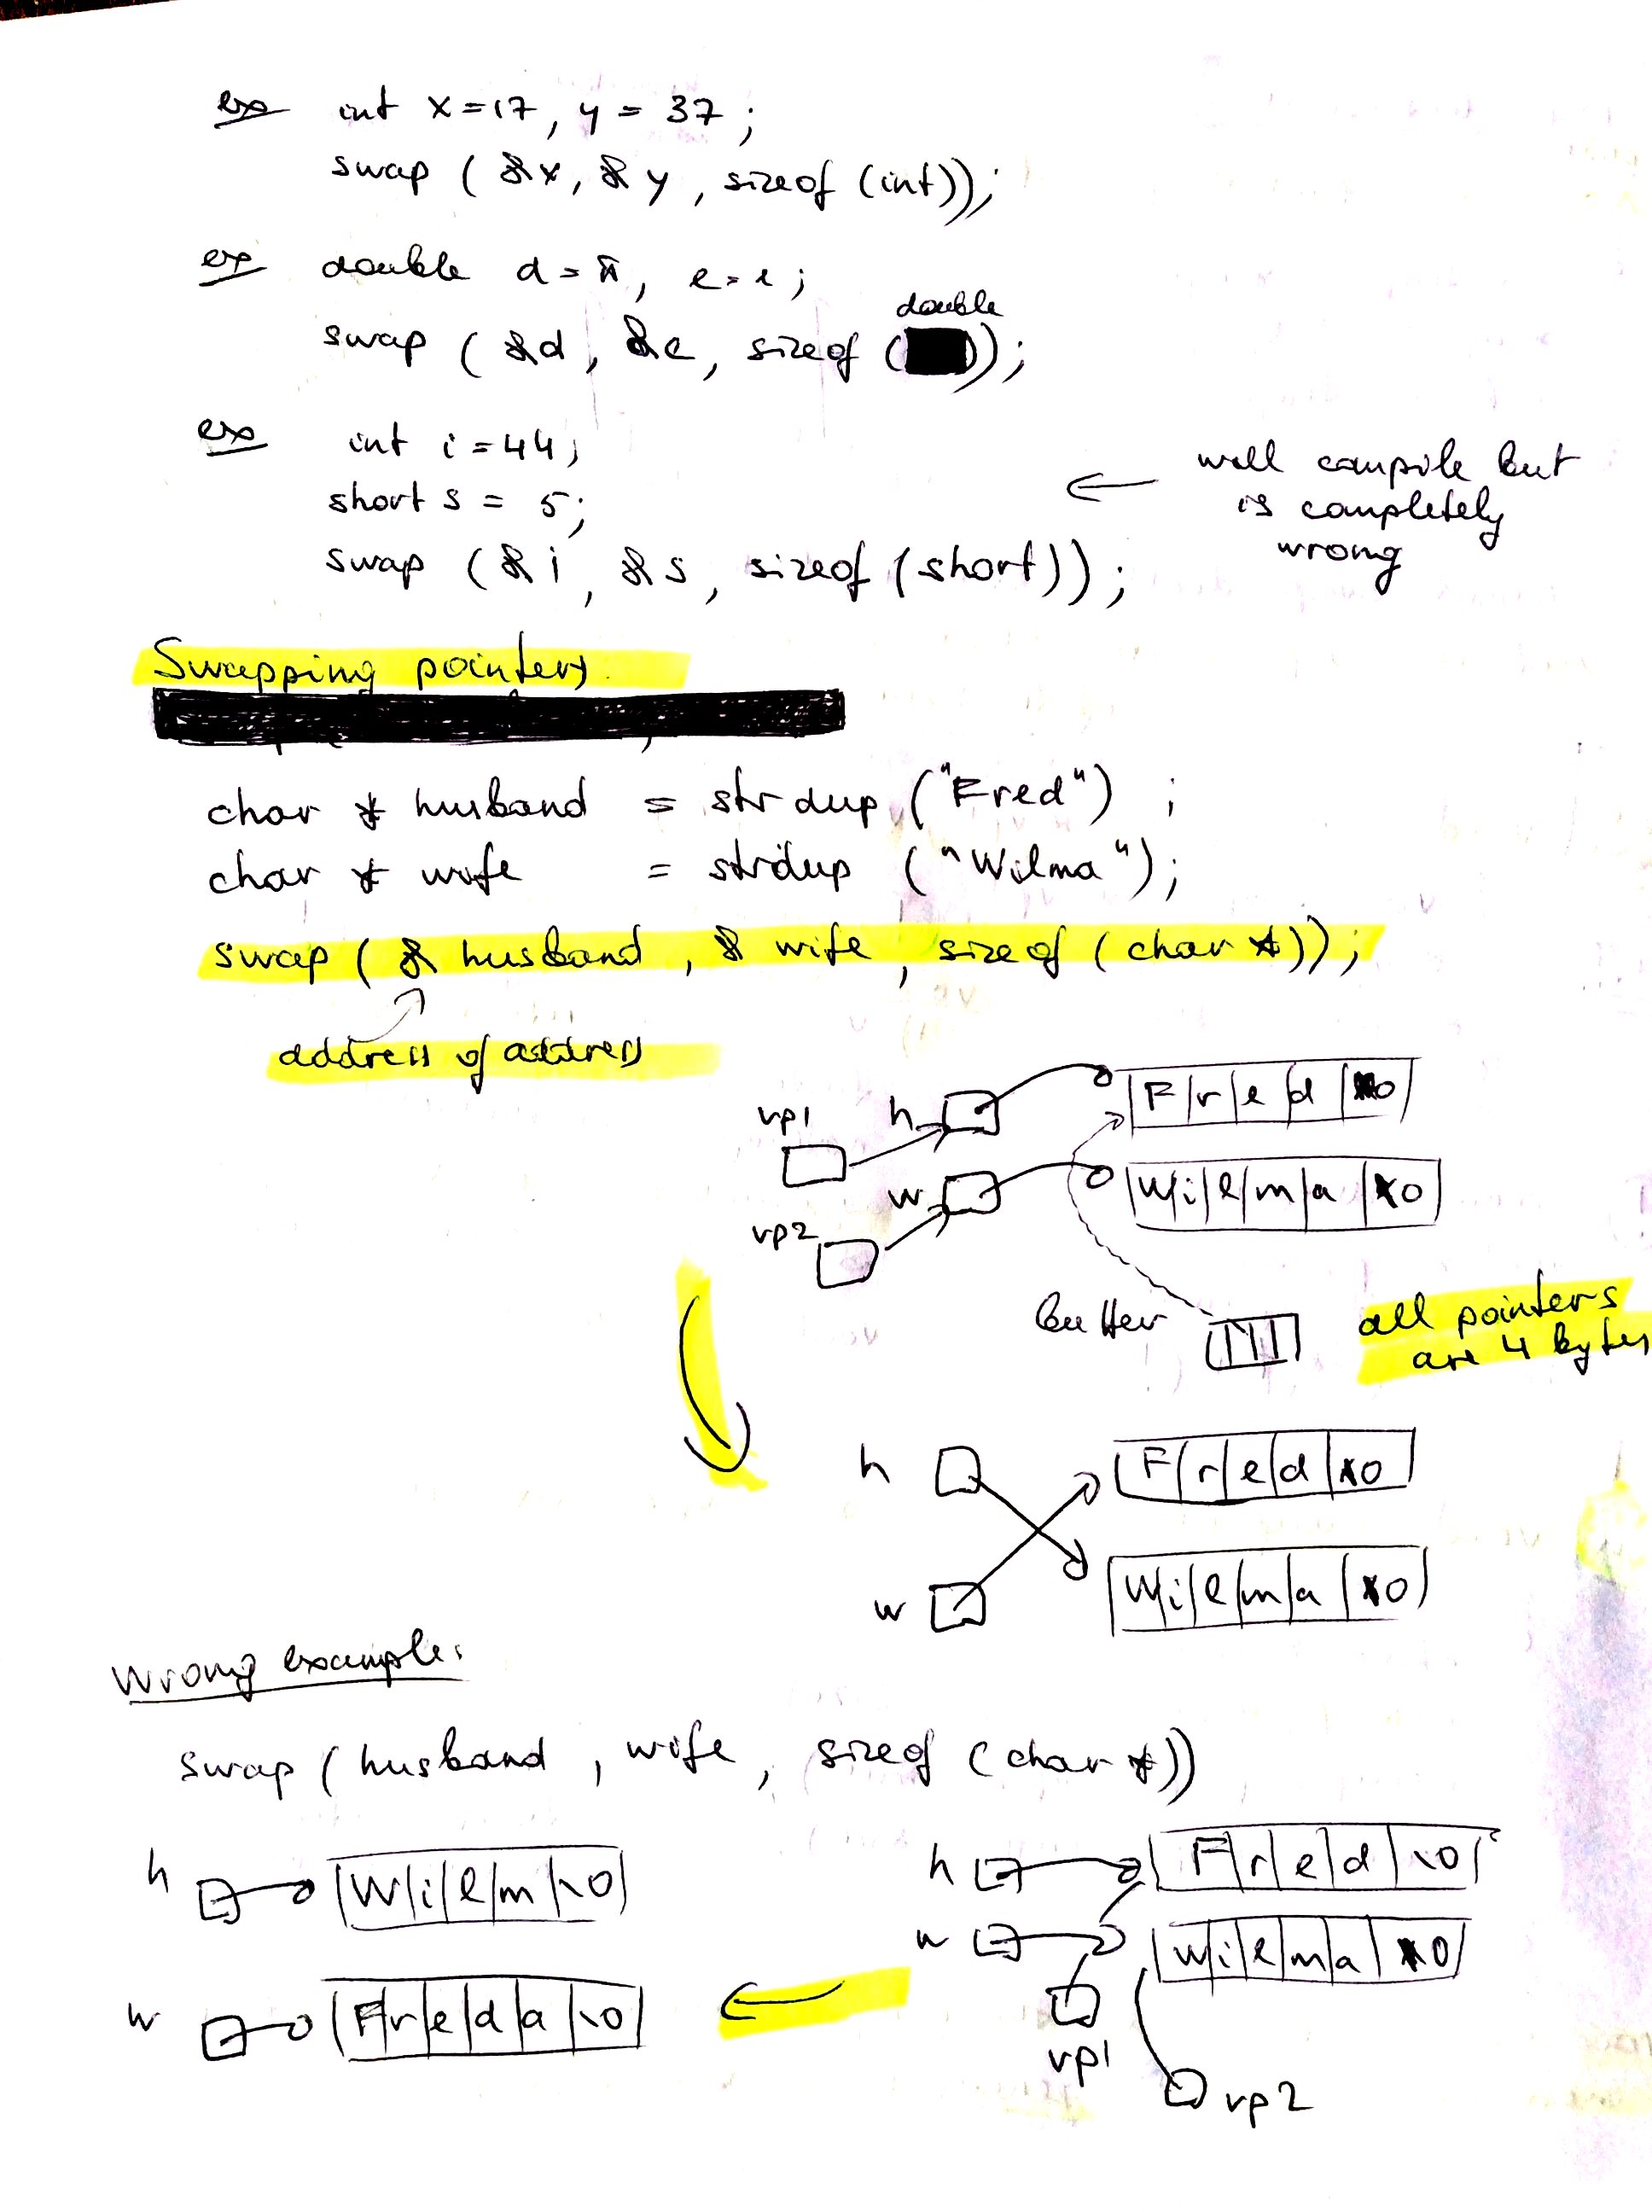 ex int x=17, y = 37;
swap ( &x, & y, sizeof (int));
ex double d = π, e = e;
double
swap ( &d, &e, sizeof ( ));
ex int i = 44;
short s = 5;
swap (& i, & s, sizeof (short));
← will compile but
is completely
wrong
Swapping pointers
char * husband = strdup ("Fred") ;
char * wife = strdup ("Wilma");
swap ( & husband, & wife, sizeof ( char *));
address of address
vp1 h F r e d \0
w W i l m a \0
vp2
buffer
all pointers
are 4 bytes
h F r e d \0
w W i l m a \0
Wrong example:
swap ( husband, wife, sizeof ( char *))
h W i l m \0
w F r e d a \0
h F r e d \0
w W i l m a \0
vp1
vp2